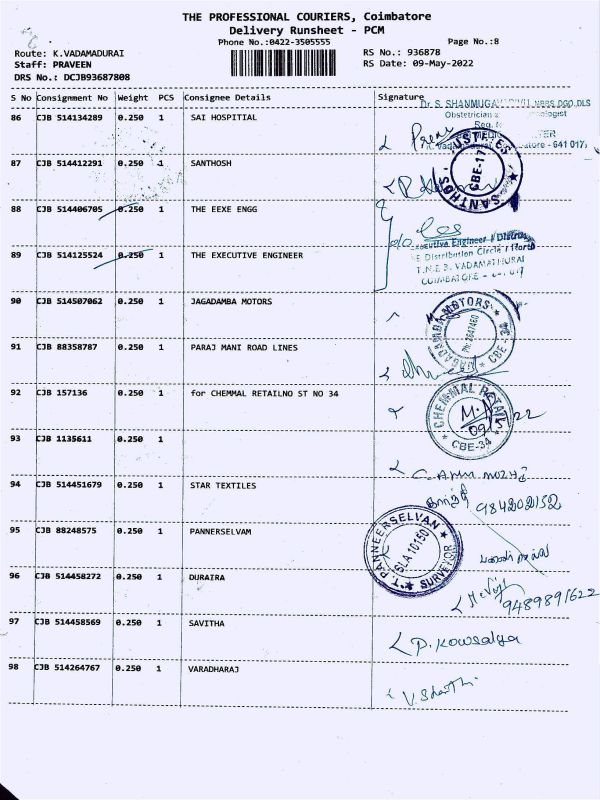 THE PROFESSIONAL COURIERS, Coimbatore
Delivery Runsheet - PCM
Phone No.:0422-3505555
Page No.:8
Route: K.VADAMADURAI
RS No.: 936878
Staff: PRAVEEN
RS Date: 09-May-2022
DRS No.: DCJB93687808
S No Consignment No Weight PCS Consignee Details Signature
Dr. S. SHANMUGA MBBS DGO DLS
Obstetrician
86 CJB 514134289 0.250 1 SAI HOSPITIAL
- 641 017
87 CJB 514412291 0.250 1 SANTHOSH
CBE-17
88 CJB 514406705 0.250 1 THE EEXE ENGG
Executive Engineer / Distribu
89 CJB 514125524 0.250 1 THE EXECUTIVE ENGINEER
E Distribution Circle / North
T.N.E.B. VADAMATHURAI
COIMBATORE -
90 CJB 514507062 0.250 1 JAGADAMBA MOTORS
JAGADAMBA MOTORS
91 CJB 88358787 0.250 1 PARAJ MANI ROAD LINES
92 CJB 157136 0.250 1 for CHEMMAL RETAILNO ST NO 34
CHEMMAL RETAIL
CBE-34
93 CJB 1135611 0.250 1
94 CJB 514451679 0.250 1 STAR TEXTILES
95 CJB 88248575 0.250 1 PANNERSELVAM
T. PANNEERSELVAN
SLA 10150
SURVEYOR
96 CJB 514458272 0.250 1 DURAIRA
9489891622
97 CJB 514458569 0.250 1 SAVITHA
P. Kowsalya
98 CJB 514264767 0.250 1 VARADHARAJ